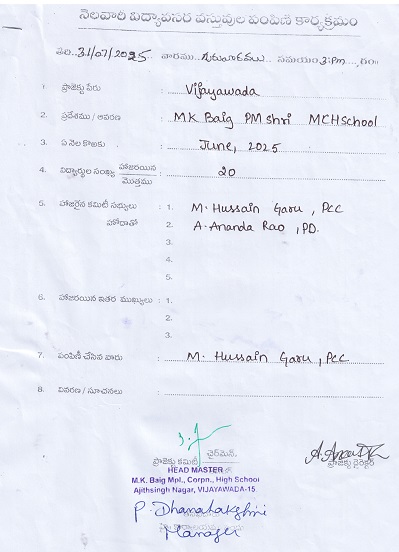 నెలవారీ విద్యావసర వస్తువుల పంపిణీ కార్యక్రమం
తేది. 31/07/2025 వారము. గురువారము సమయం 3.Pm గం॥
1. ప్రాజెక్టు పేరు : Vijayawada
2. ప్రదేశము / ఆవరణ : MK Baig PM shri MCH School
3. ఏ నెల కొఱకు : June, 2025
4. విద్యార్థుల సంఖ్య హాజరయిన / మొత్తము : 20
5. హాజరైన కమిటీ సభ్యులు : 1. M. Hussain Garu, PCC
హోదాతో 2. A. Ananda Rao, PD.
3.
4.
5.
6. హాజరయిన ఇతర ముఖ్యులు : 1.
2.
3.
7. పంపిణీ చేసిన వారు : M. Hussain Garu, PCC
8. వివరణ / సూచనలు :
ప్రాజెక్టు కమిటీ ఛైర్మెన్.
ప్రాజెక్టు డైరెక్టర్
HEAD MASTER
M.K. Baig Mpl., Corpn., High School
Ajithsingh Nagar, VIJAYAWADA-15
P. Dhanalakshmi
Manager